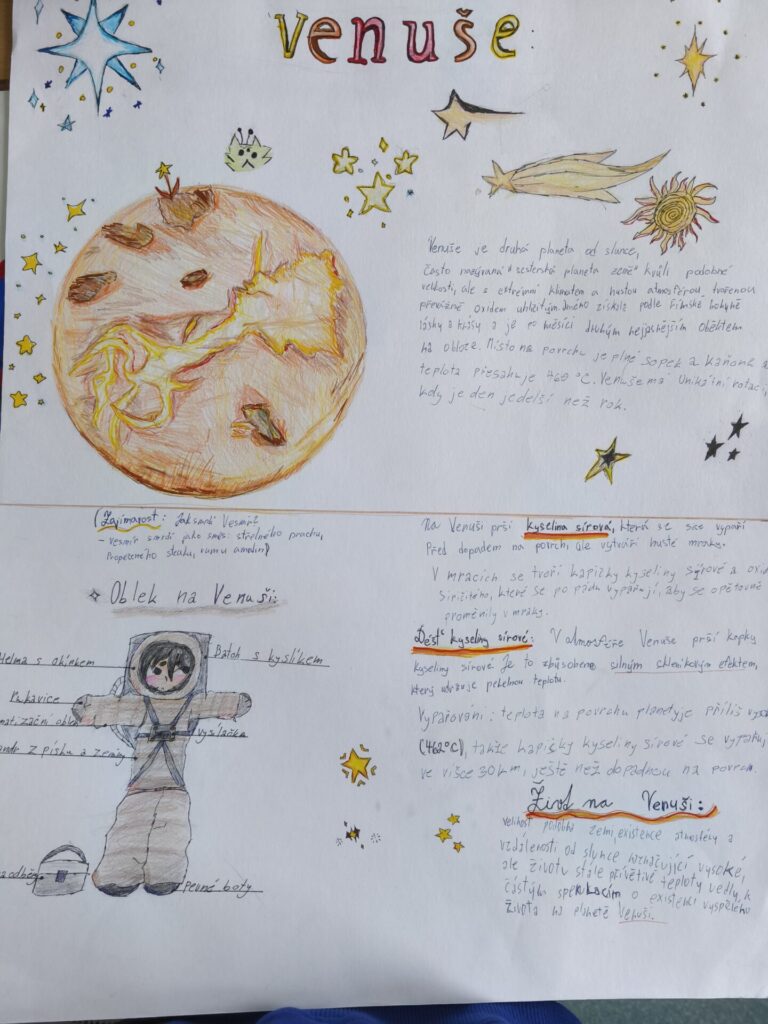 Venuše:
Venuše je druhá planeta od slunce,
často nazývaná "sesterská planeta země" kvůli podobné
velikosti, ale s extrémní klimatem a hustou atmosférou tvořenou
převážně oxidem uhličitým. Jméno získala podle římské bohyně
lásky a krásy a je po měsíci druhým nejjasnějším objektem
na obloze. Místo na povrchu je plné sopek a kaňonů a
teplota přesahuje 460 °C. Venuše má unikátní rotaci,
kdy je den je delší než rok.
(Zajímavost: Jak smrdí Vesmír?
- Vesmír smrdí jako směs: střelného prachu,
Propečeného steaku, rumu a malin)
Oblek na Venuši:
Helma s okínkem
Batoh s kyslíkem
Rukavice
Vysílačka
pevné boty
Na Venuši prší kyselina sírová, která se sice vypaří
Před dopadem na povrch, ale vytváří husté mraky.
V mracích se tvoří kapičky kyseliny sírové a oxidu
Siřičitého, které se po pádu vypařují, aby se opětovně
proměnily v mraky.
Déšť kyseliny sírové: V atmosféře Venuše prší kapky
kyseliny sírové. Je to způsobeno silným skleníkovým efektem,
který udržuje pekelnou teplotu.
Vypařování: teplota na povrchu planety je příliš
(462°C), takže kapičky kyseliny sírové se
ve výšce 30km, ještě než dopadnou na povrch.
Život na Venuši:
velikost podobná zemi, existence atmosféry a
vzdálenosti od slunce naznačující vysoké,
ale životu stále přívětivé teploty vedly k
častým spekulacím o existenci vyspělého
života na planetě Venuši.